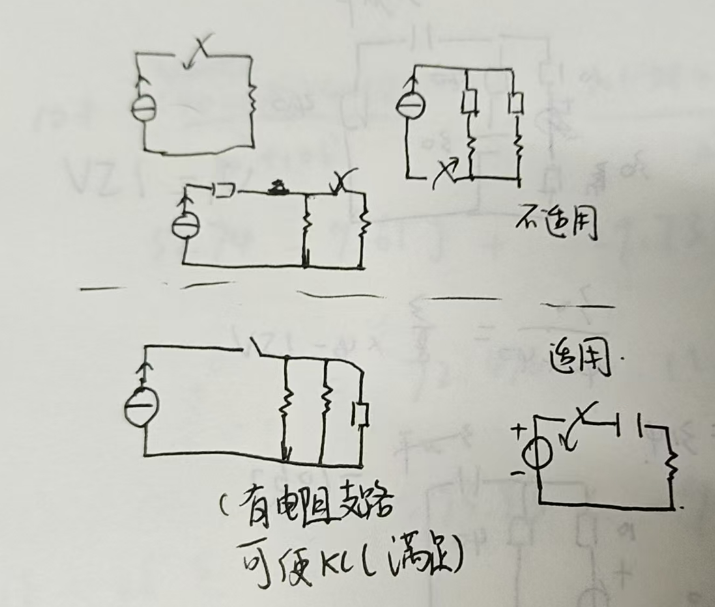 不适用
适用.
+
-
(有电阻支路
可使KCL满足)